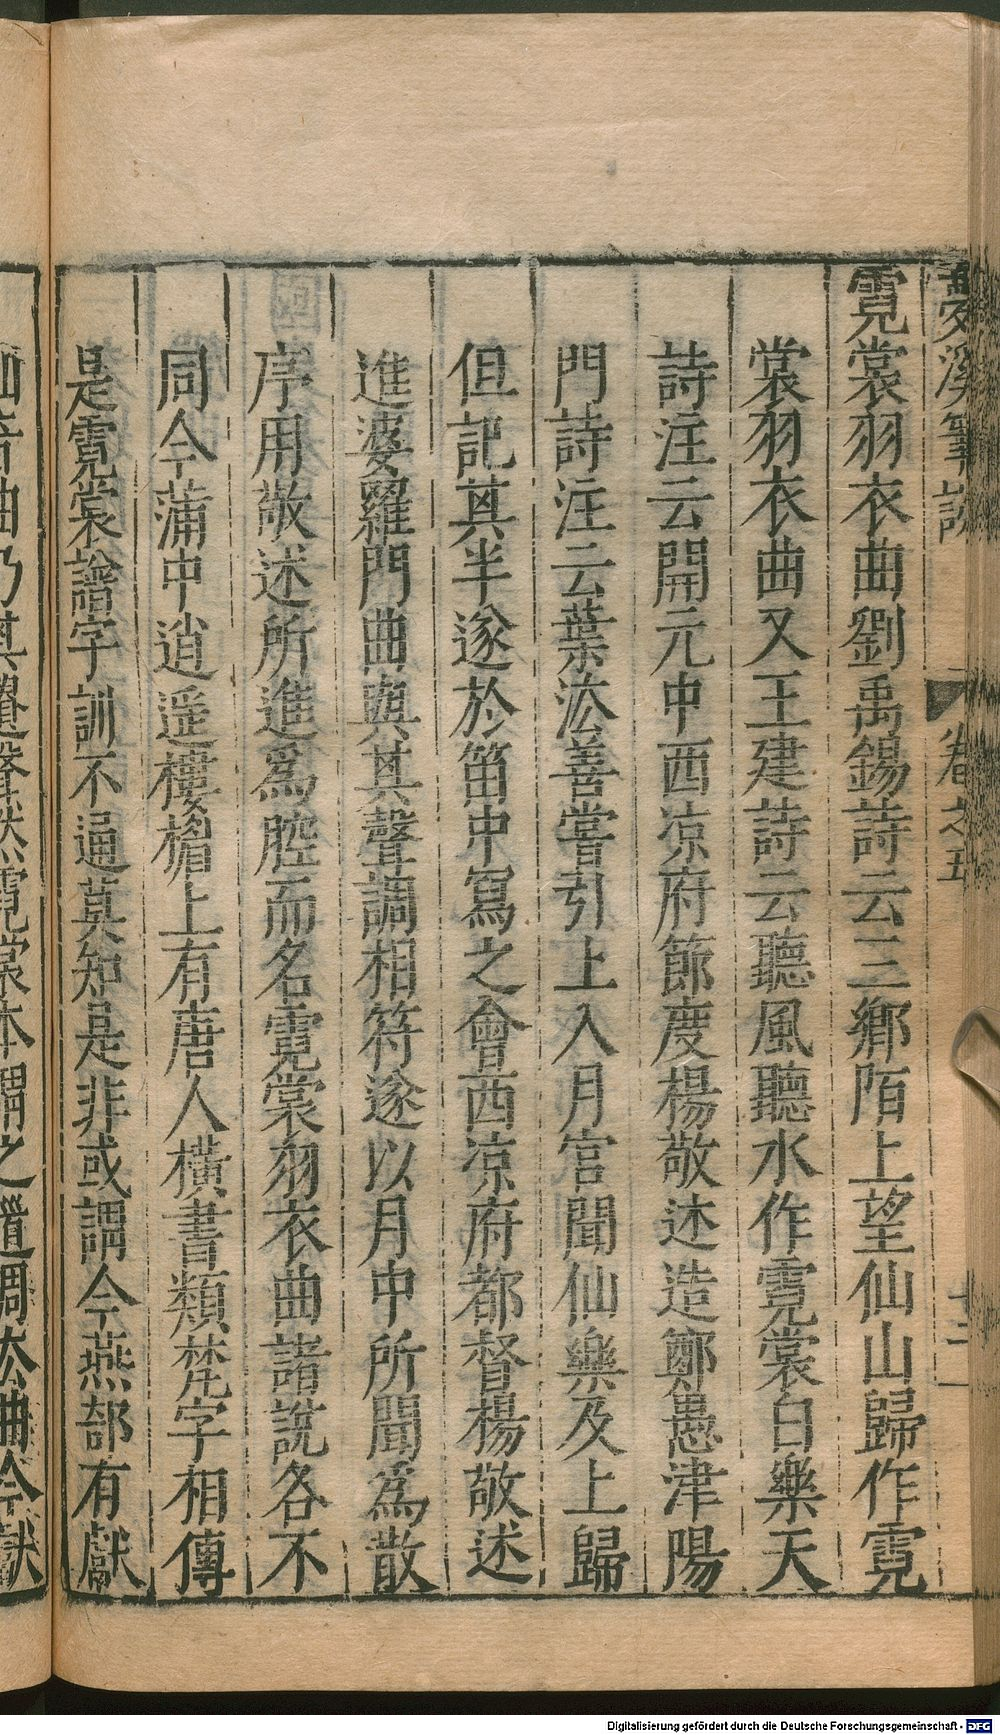 夢溪筆談 卷之五 十二
霓裳羽衣曲劉禹錫詩云三鄉陌上望仙山歸作霓
裳羽衣曲又王建詩云聽風聽水作霓裳白樂天
詩注云開元中西凉府節度楊敬述造鄭愚津陽
門詩注云葉法善嘗引上入月宮聞仙樂及上歸
但記其半遂於笛中寫之會西凉府都督楊敬述
進婆羅門曲與其聲調相符遂以月中所聞爲散
序用敬述所進爲腔而名霓裳羽衣曲諸說各不
同今蒲中逍遥樓楣上有唐人橫書類梵字相傳
是霓裳譜字訓不通莫知是非或謂今燕部有獻
仙音曲乃其遺聲然霓裳本謂之道調法曲今獻
Digitalisierung gefördert durch die Deutsche Forschungsgemeinschaft - DFG